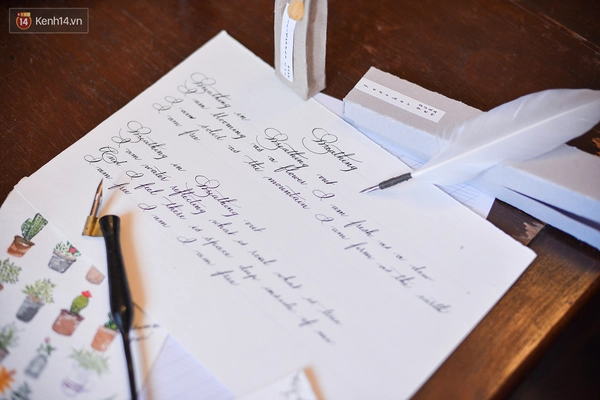 14 Kenh14.vn
Breathing in
Breathing
Breathing out
I am blooming as a flower I am fresh as a dew
I am solid as the mountain I am firm as the earth
I am free
Breathing in Breathing out
I am water reflecting what is real what is true
And I feel there is space deep inside of me
I am free I am free I am free